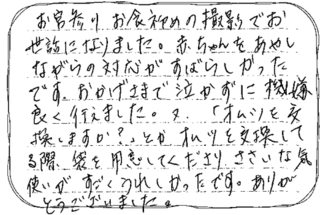 お宮参り お食い初めの撮影でお
世話になりました。赤ちゃんをあやし
ながらの対応がすばらしかった
です。おかげさまで泣かずに機嫌
良く行えました。又、「オムツを交
換しますか?」とかオムツを交換して
る際、袋を用意してくださり、ささいな気
使いが すごくうれしかったです。ありが
とうございました。